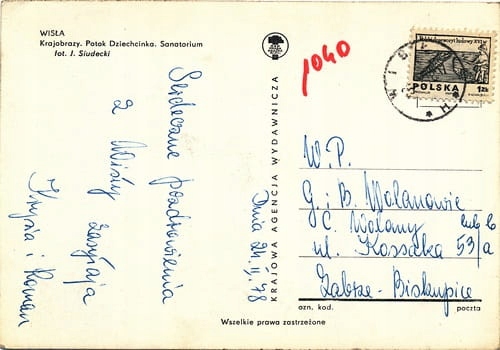 WISŁA
Krajobrazy. Potok Dziechcinka. Sanatorium
fot. J. Siudecki
Serdeczne Pozdrowienia
z Wisły zasyłają
Krysia i Roman
Dnia 24.II.78
KRAJOWA AGENCJA WYDAWNICZA
1040
POLSKA
1 ZŁ
W.P.
G. i B. Wolanowie
C. Wolany
ul. Kossaka 53/a
lub b
Zabrze-Biskupice
ozn. kod. poczta
Wszelkie prawa zastrzeżone